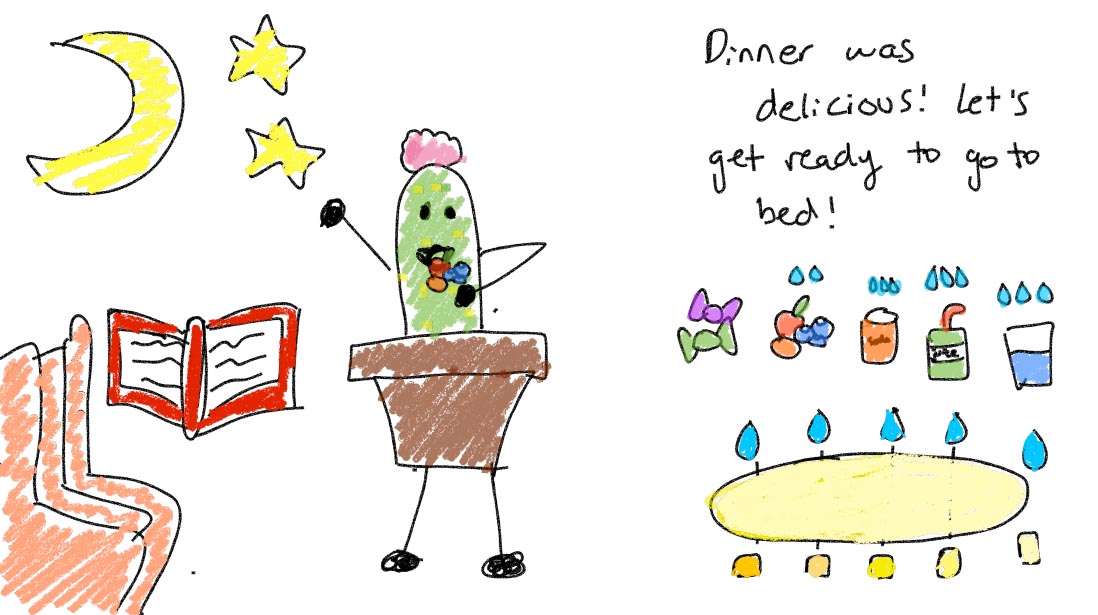 Dinner was
delicious! Let's
get ready to go to
bed!
Soda
juice